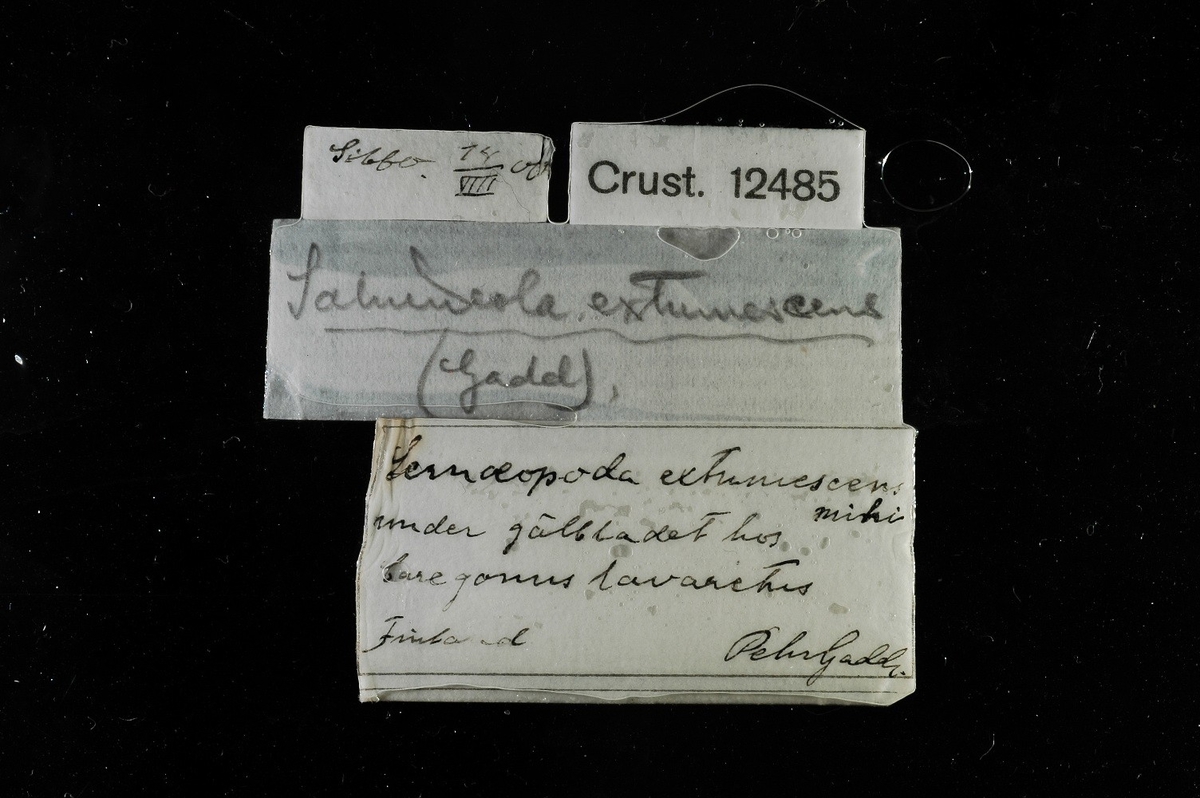 Sibbo. 14/VIII
Crust. 12485
Salmincola extumescens
(Gadd),
Lernæopoda extumescens
mihi
under gälbladet hos
Coregonus lavaretus
Finland
Pehr Gadd.